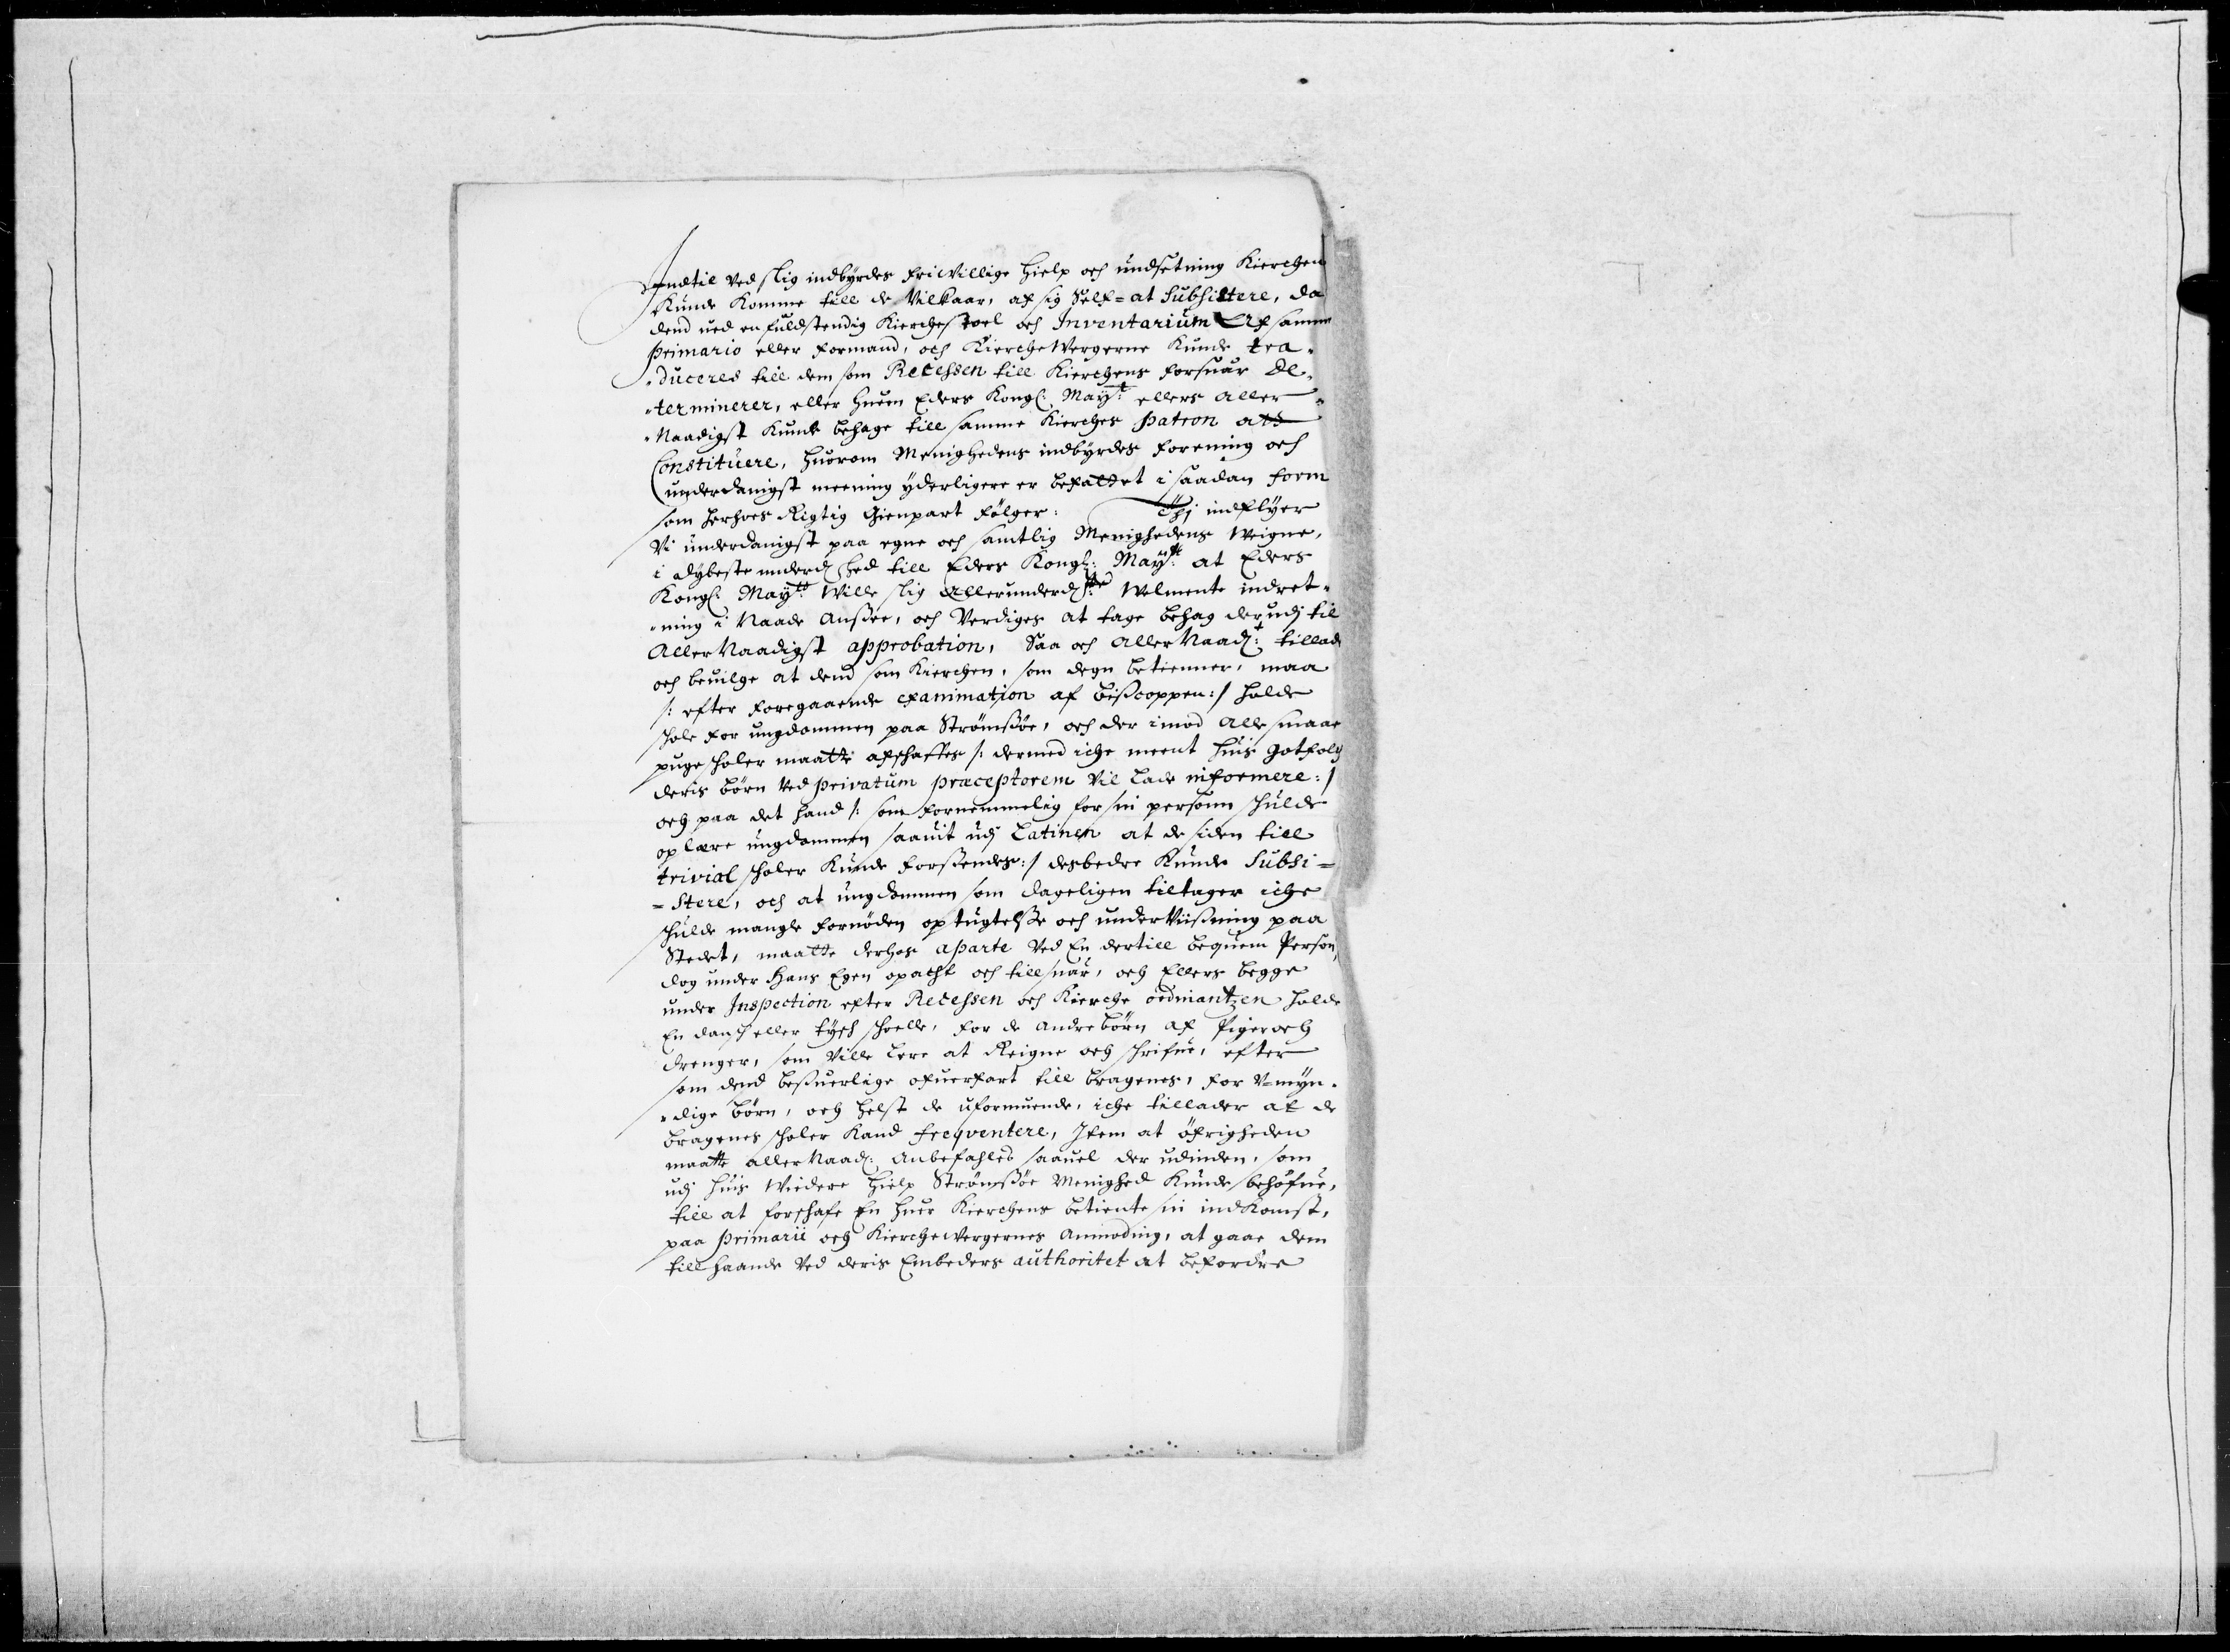 Indtil ved slig indbÿrdes friwillige hielp och undsetning Kierchen
Kunde Komme till de Vilkaar, af sig Self=at Subsistere, da
dend ued en fuldstendig Kierchestoel och Inventarium Af samme
primario eller formand, och KiercheWergerne Kunde tra-
-duceres till dem som Recessen till Kierchens forsuar De-
-terminerer, eller huem Eders Kongl: Maÿt: ellers aller-
-Naadigst Kunde behage till samme Kierches patron att
Constituere, huorom Menighedens indbÿrdes forening och
underdanigst meening ÿderligere er befattet i saadan form
som herhoes Rigtig Gienpart følger: Thj indflÿer
Vi underdanigst paa egne och samtlig Menighedens Weigne,
i dÿbeste underd:hed till Eders Kongl: Maÿtt: at Eders
Kongl: Maÿtt: Wille slig Allerunderd:ste Welmente indret-
-ning i Naade Anssee, och Verdiges at tage behag derudj til
AllerNaadigst approbation, Saa och AllerNaad:t tillade
och beuilge at dend som Kierchen, som degn betienner, maa
/: efter foregaaende examination af bisscoppen :/ holde
schole for ungdommen paa Strømssøe, och der imod alle smaae
pugescholer maatte afschaffes /: dermed iche meent huis gotfolch
deris børn ved privatum præceptorem vil lade informere :/
och paa det hand /: som fornemmelig for sin persoun schulde
oplære ungdommen saauit udj Latinen at de siden till
trivial scholer Kunde forssendes :/ desbedre Kunde Subsi=
=stere, och at ungdommen som dageligen tiltager iche
schulde mangle fornøden optugtelsse och underViissning paa
Stedet, maatte derhos aparte Ved En dertill bequem Person,
dog under Hans Egen opacht och tillsuar, och Ellers begge
under Inspection efter Recessen och Kierche ordinantzen holde
En dansch eller tÿsch schoelle, for de andre børn af Piger och
drenger, som Ville lere at Reigne och schrifue, efter
som dend bessuerlige ofuerfart till bragenes, for V=mÿn-
-dige børn, och helst de uformuende, iche tillader at de
bragenes scholer Kand freqventere, Item at øfrigheden
maatte allerNaad: Anbefahles saauel der udinden, som
udj huis Wiedere hielp Strømssøe Menighed Kunde behøfue,
till at forschafe En huer Kierchens betiente sin indKomst,
paa primarii och KiercheWergernes Anmoding, at gaae dem
till haande Ved deris Embeders authoritet at befordre